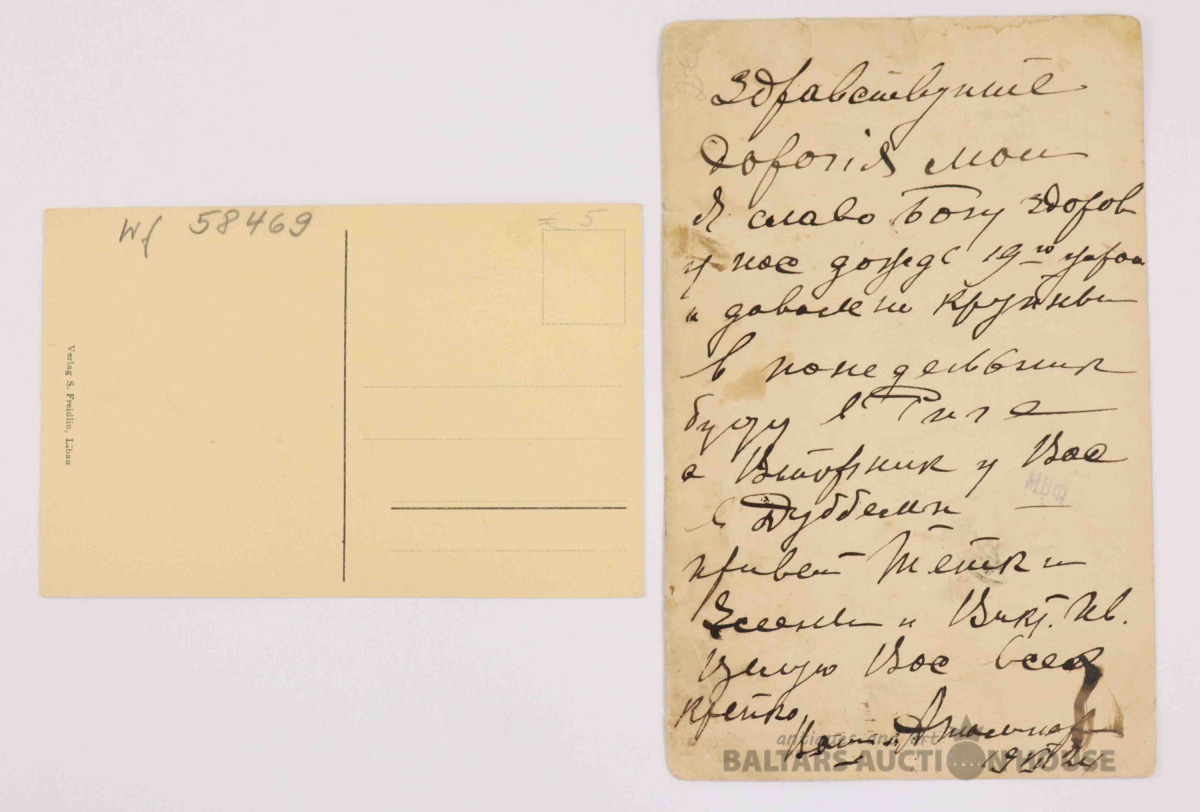 Wf 58469
€ 5
Verlag S. Freidlin, Libau
Здравствуйте
Дорогiя мои
Я славо Богу здоров
у нас дождь 19го утром
и довольно крупный
в понедельник
буду в Риге
а Вторник у Вас
в Дуббельн
привет Тетки
и Викт. Ив.
Целую Вас всех
крепко,
antiques and art
BALTARS AUCTION HOUSE
М.В.Ф